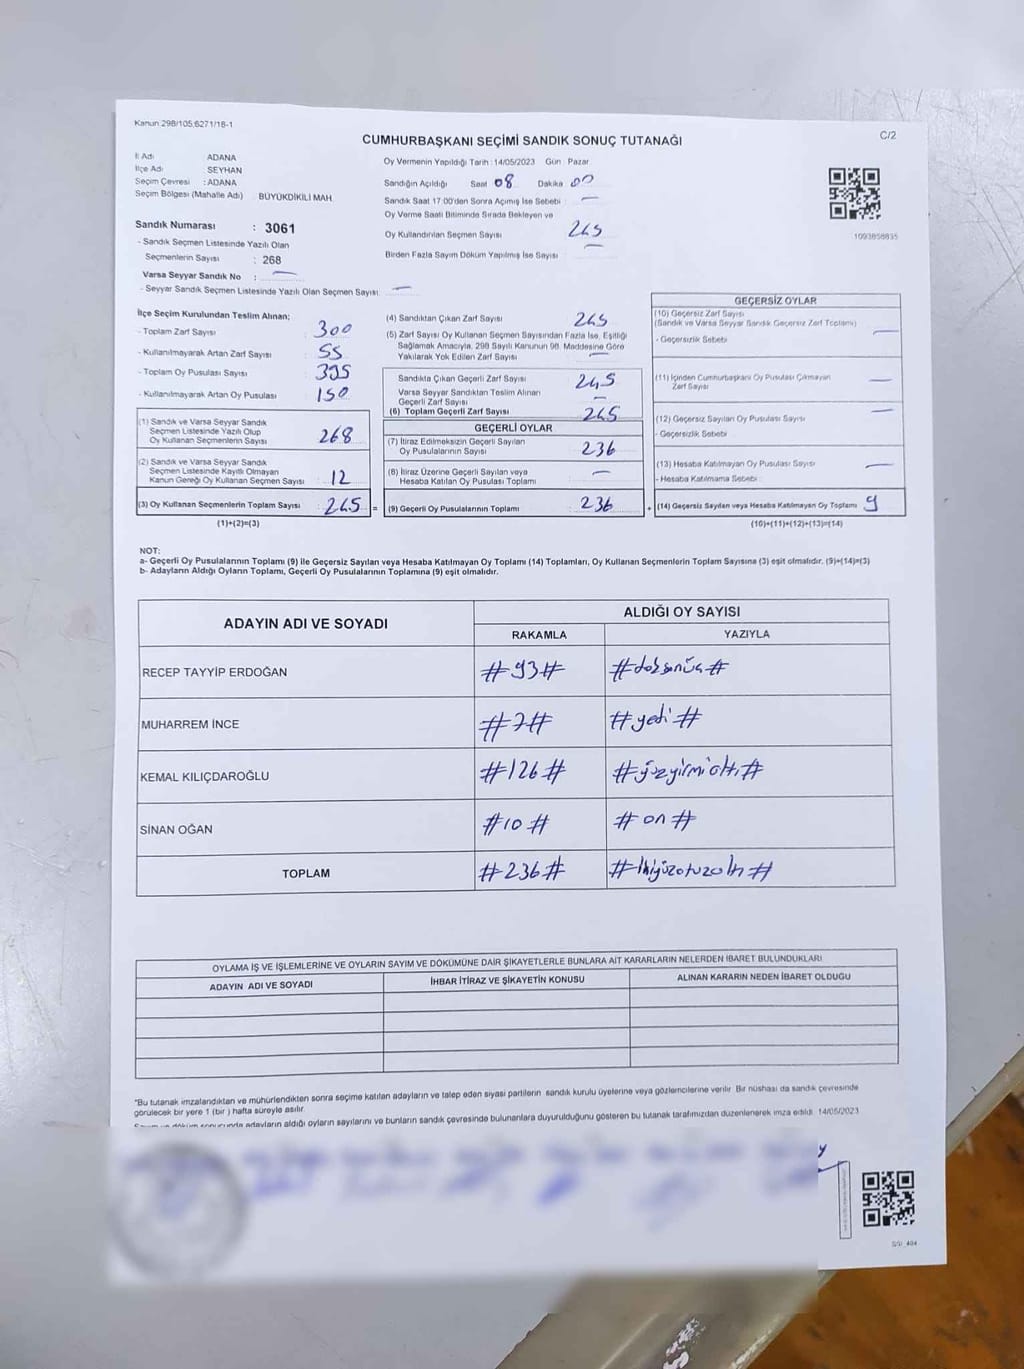 Kanun 298/105,6271/18-1
C/2
CUMHURBAŞKANI SEÇİMİ SANDIK SONUÇ TUTANAĞI
İl Adı ADANA
İlçe Adı SEYHAN
Seçim Çevresi : ADANA
Seçim Bölgesi (Mahalle Adı) BÜYÜKDİKİLİ MAH.
Sandık Numarası : 3061
- Sandık Seçmen Listesinde Yazılı Olan
Seçmenlerin Sayısı : 268
Varsa Seyyar Sandık No : —
- Seyyar Sandık Seçmen Listesinde Yazılı Olan Seçmen Sayısı —
Oy Vermenin Yapıldığı Tarih : 14/05/2023 Gün : Pazar
Sandığın Açıldığı Saat 08 Dakika 00
Sandık Saat 17.00'den Sonra Açımış İse Sebebi : —
Oy Verme Saati Bitiminde Sırada Bekleyen ve
Oy Kullandırılan Seçmen Sayısı 245
Birden Fazla Sayım Döküm Yapılmış İse Sayısı —
1093858835
İlçe Seçim Kurulundan Teslim Alınan;
- Toplam Zarf Sayısı : 300
- Kullanılmayarak Artan Zarf Sayısı : 55
- Toplam Oy Pusulası Sayısı : 395
- Kullanılmayarak Artan Oy Pusulası : 150
(1) Sandık ve Varsa Seyyar Sandık
Seçmen Listesinde Yazılı Olup
Oy Kullanan Seçmenlerin Sayısı 268
(2) Sandık ve Varsa Seyyar Sandık
Seçmen Listesinde Kayıtlı Olmayan
Kanun Gereği Oy Kullanan Seçmen Sayısı 12
(3) Oy Kullanan Seçmenlerin Toplam Sayısı : 245 =
(1)+(2)=(3)
(4) Sandıktan Çıkan Zarf Sayısı 245
(5) Zarf Sayısı Oy Kullanan Seçmen Sayısından Fazla İse, Eşitliği
Sağlamak Amacıyla, 298 Sayılı Kanunun 98. Maddesine Göre
Yakılarak Yok Edilen Zarf Sayısı —
Sandıkta Çıkan Geçerli Zarf Sayısı 245
Varsa Seyyar Sandıktan Teslim Alınan
Geçerli Zarf Sayısı —
(6) Toplam Geçerli Zarf Sayısı 245
GEÇERLİ OYLAR
(7) İtiraz Edilmeksizin Geçerli Sayılan
Oy Pusulalarının Sayısı 236
(8) İtiraz Üzerine Geçerli Sayılan veya
Hesaba Katılan Oy Pusulası Toplamı —
(9) Geçerli Oy Pusulalarının Toplamı 236 +
GEÇERSİZ OYLAR
(10) Geçersiz Zarf Sayısı
(Sandık ve Varsa Seyyar Sandık Geçersiz Zarf Toplamı) —
- Geçersizlik Sebebi
(11) İçinden Cumhurbaşkanı Oy Pusulası Çıkmayan
Zarf Sayısı —
(12) Geçersiz Sayılan Oy Pusulası Sayısı —
- Geçersizlik Sebebi
(13) Hesaba Katılmayan Oy Pusulası Sayısı —
- Hesaba Katılmama Sebebi :
(14) Geçersiz Sayılan veya Hesaba Katılmayan Oy Toplamı 9
(10)+(11)+(12)+(13)=(14)
NOT:
a- Geçerli Oy Pusulalarının Toplamı (9) ile Geçersiz Sayılan veya Hesaba Katılmayan Oy Toplamı (14) Toplamları, Oy Kullanan Seçmenlerin Toplam Sayısına (3) eşit olmalıdır. (9)+(14)=(3)
b- Adayların Aldığı Oyların Toplamı, Geçerli Oy Pusulalarının Toplamına (9) eşit olmalıdır.
ADAYIN ADI VE SOYADI
ALDIĞI OY SAYISI
RAKAMLA YAZIYLA
RECEP TAYYİP ERDOĞAN #93# #doksanüç#
MUHARREM İNCE #7# #yedi#
KEMAL KILIÇDAROĞLU #126# #yüzyirmialtı#
SİNAN OĞAN #10# #on#
TOPLAM #236# #ikiyüzotuzaltı#
OYLAMA İŞ VE İŞLEMLERİNE VE OYLARIN SAYIM VE DÖKÜMÜNE DAİR ŞİKAYETLERLE BUNLARA AİT KARARLARIN NELERDEN İBARET BULUNDUKLARI
ADAYIN ADI VE SOYADI İHBAR İTİRAZ VE ŞİKAYETİN KONUSU ALINAN KARARIN NEDEN İBARET OLDUĞU
"Bu tutanak imzalandıktan ve mühürlendikten sonra seçime katılan adayların ve talep eden siyasi partilerin sandık kurulu üyelerine veya gözlemcilerine verilir. Bir nüshası da sandık çevresinde
görülecek bir yere 1 (bir ) hafta süreyle asılır.
Sayım ve döküm sonucunda adayların aldığı oyların sayılarını ve bunların sandık çevresinde bulunanlara duyurulduğunu gösteren bu tutanak tarafımızdan düzenlenerek imza edildi. 14/05/2023